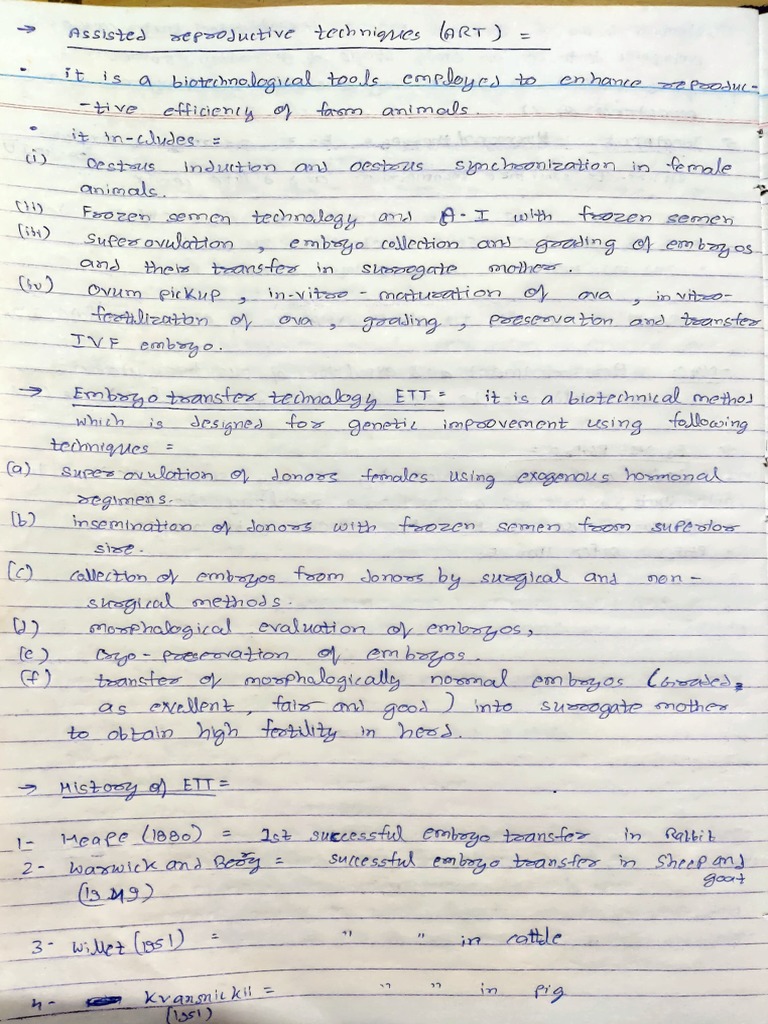 → Assisted reproductive techniques (ART) =
• it is a biotechnological tools employed to enhance reproduc-
-tive efficiency of farm animals.
• it in-cludes =
(i) Oestrus induction and oestrous synchronization in female
animals.
(ii) Frozen semen technology and A-I with frozen semen
(iii) superovulation, embryo collection and grading of embryos
and their transfer in surrogate mother.
(iv) Ovum pickup, in-vitro-maturation of ova, in vitro-
fertilization of ova, grading, preservation and transfer
IVF embryo.
→ Embryo transfer technology ETT = it is a biotechnical method
which is designed for genetic improvement using following
techniques =
(a) super ovulation of donors females using exogenous hormonal
regimens.
(b) insemination of donors with frozen semen from superior
sire.
(c) collection of embryos from donors by surgical and non-
surgical methods.
(d) morphalogical evaluation of embryos,
(e) cryo-preservation of embryos.
(f) transfer of morphalogically normal embryos (Graded
as excellent, fair and good) into surrogate mother
to obtain high fertility in herd.
→ History of ETT =
1- Heape (1880) = 1st successful embryo transfer in Rabbit
2- Warwick and Berry = successful embryo transfer in Sheep and
goat
(1949)
3- Willet (1951) = " " in cattle
4- Kvansnickii = " " in pig
(1951)